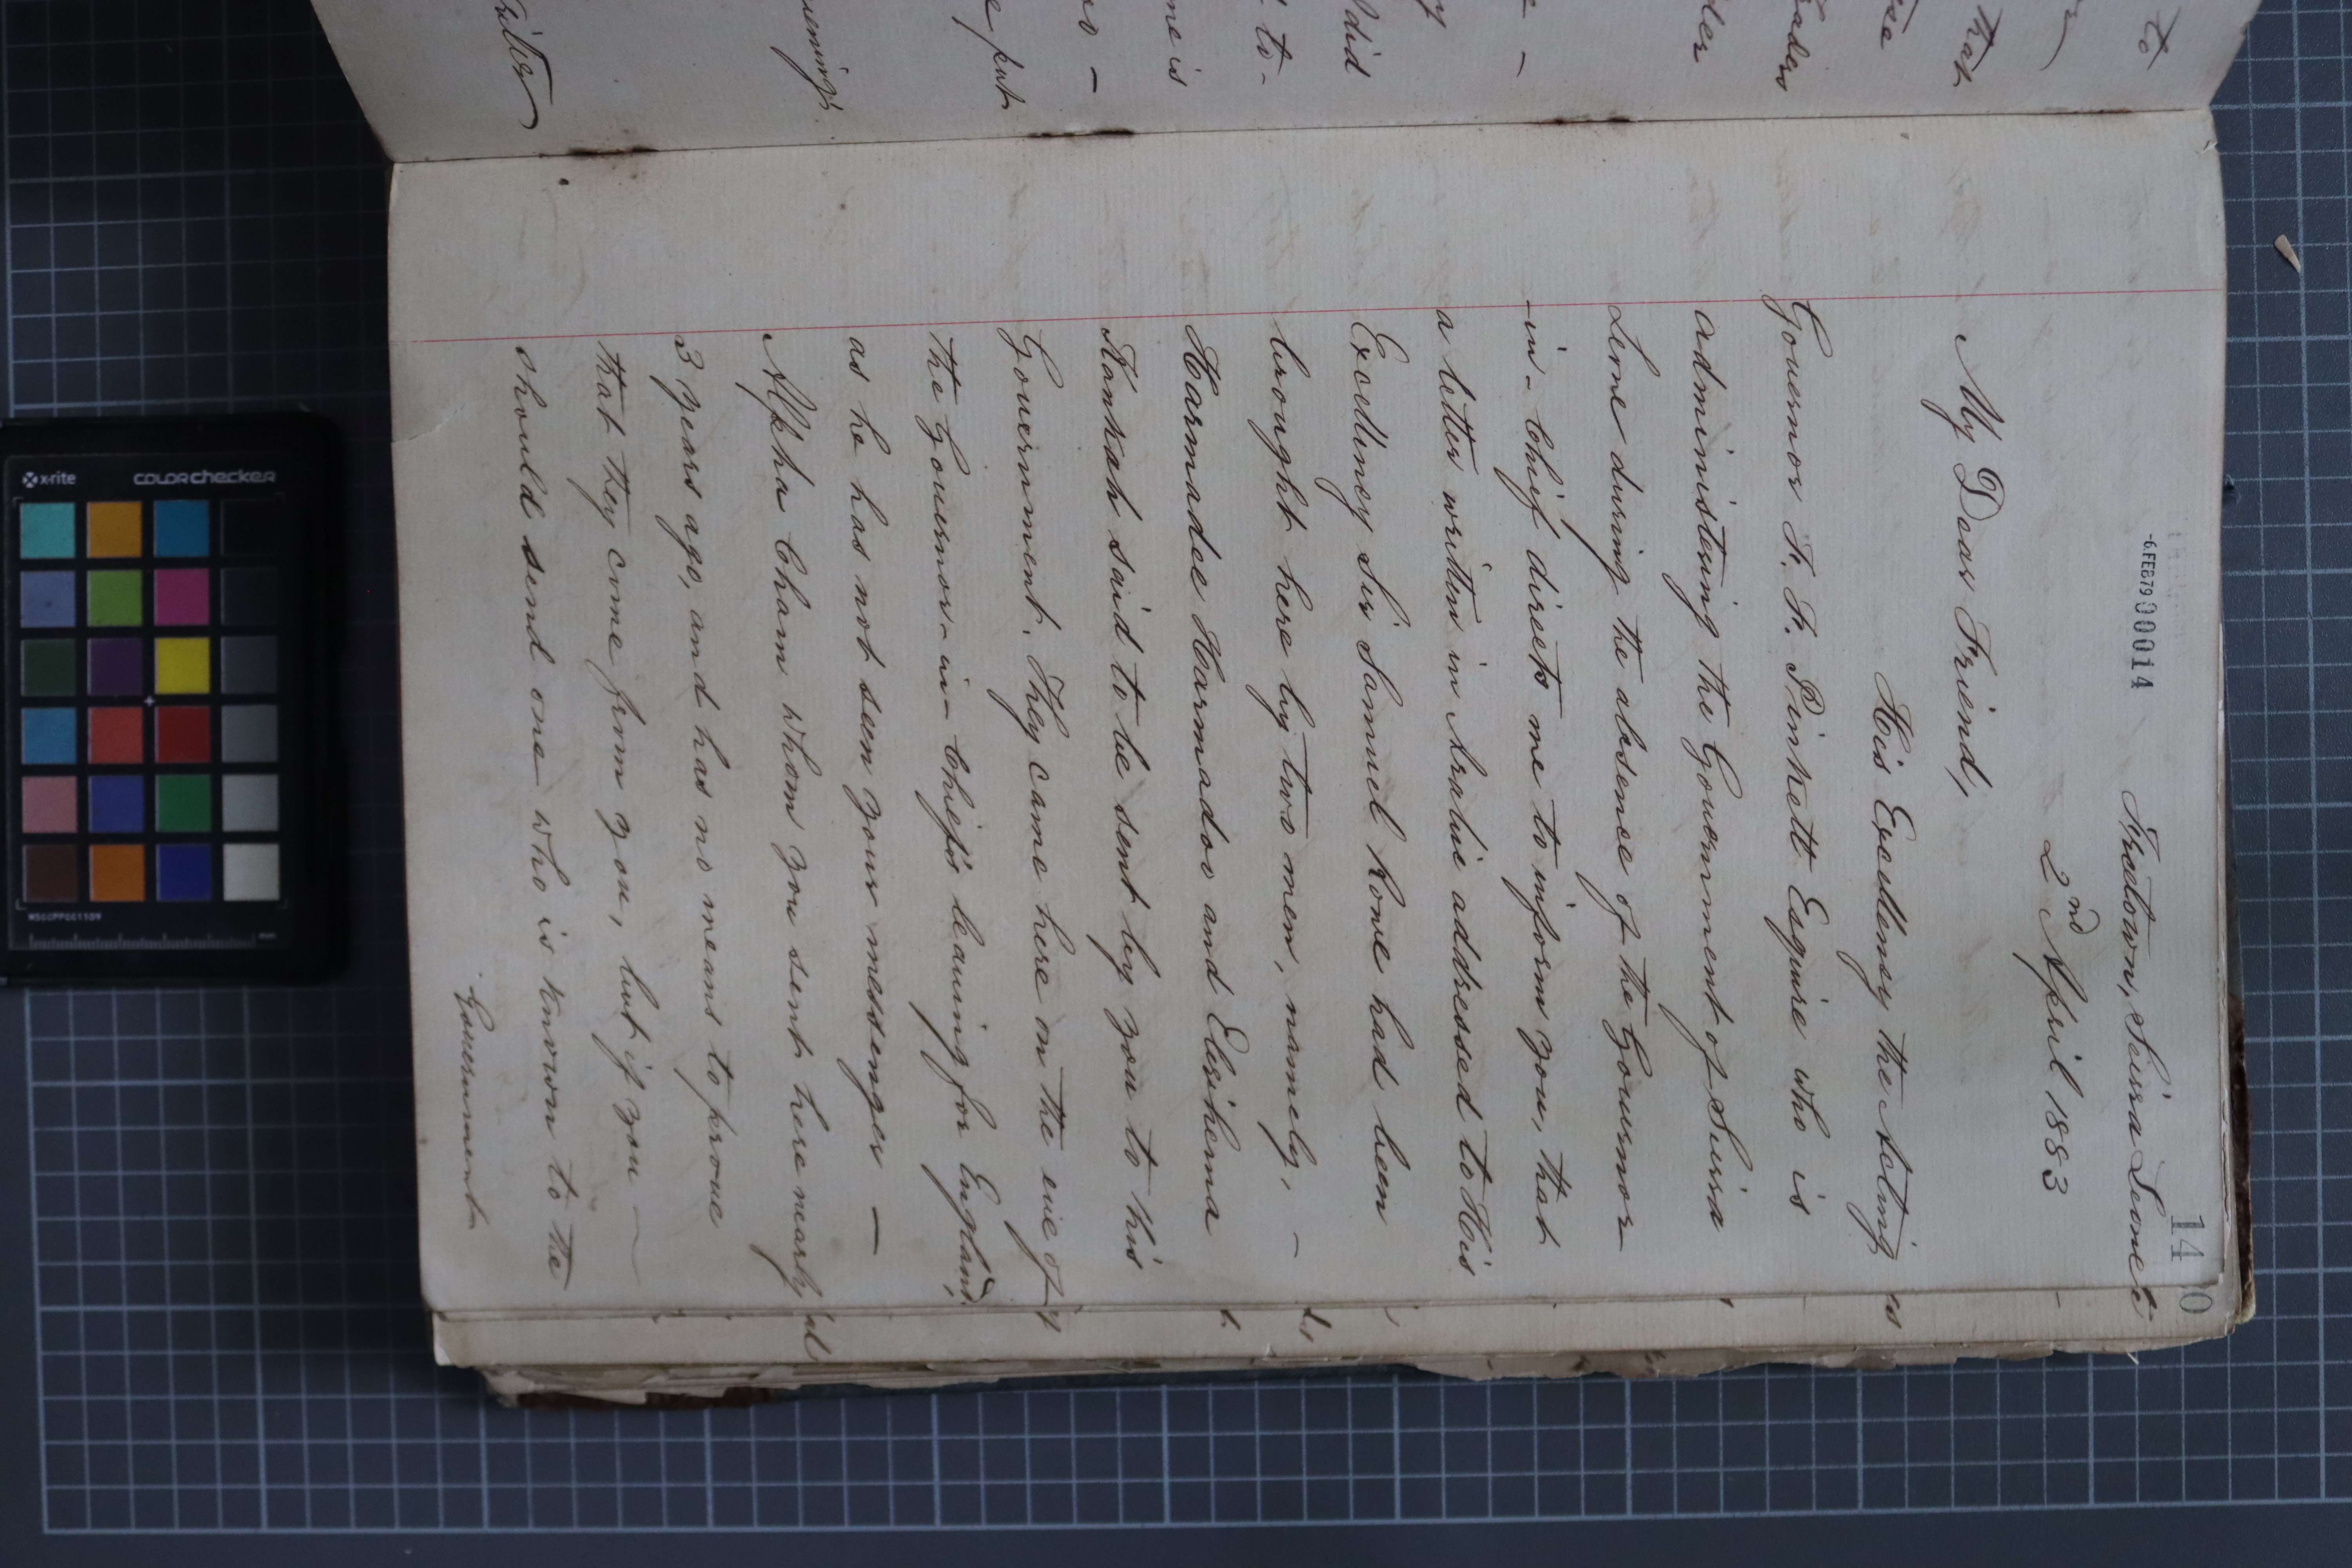 14
-6.FEB79 00014
Freetown, Seirra Leone
2nd April 1883
My Dear Friend,
His Excellency the Acting
Governor F. F. Pinkett Esquire who is
administering the Government of Seirra
Leone during the absence of the Governor
-in-Chief directs me to inform you, that
a letter written in Arabic addressed to His
Excellency Sir Samuel Rowe had been
brought here by two men, namely, -
Harmadee Harmadoo and
Kankah said to be sent by you to his
Government. They came here on the eve of
the Governor-in-Chief's leaving for England,
as he has not seen your messenger -
Alpha Cham whom you sent here nearly
3 years ago, and has no means to prove
that they come from you, but if you -
should send one who is known to the
Government
x-rite
colorchecker
MSCCPPCC1109